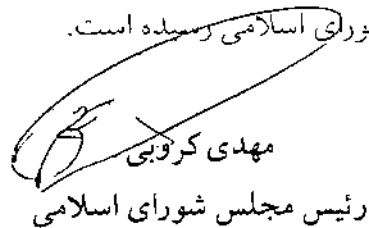 ورای اسلامی رسیده است.
مهدی کروبی
رئیس مجلس شورای اسلامی